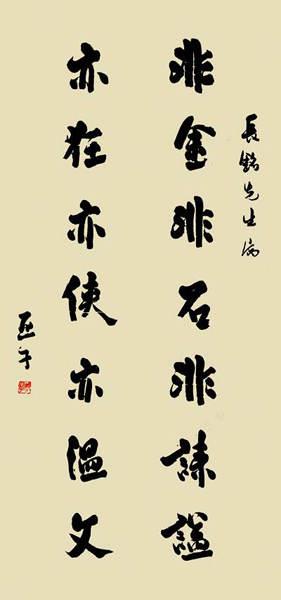 長銘先生屬
非金非石非
亦狂亦俠亦溫文
亞子